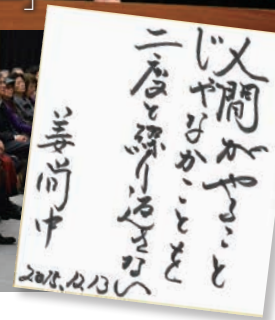 」
人間がやること
じゃなかことを
二度と繰り返さない
姜尚中
2015.12.13